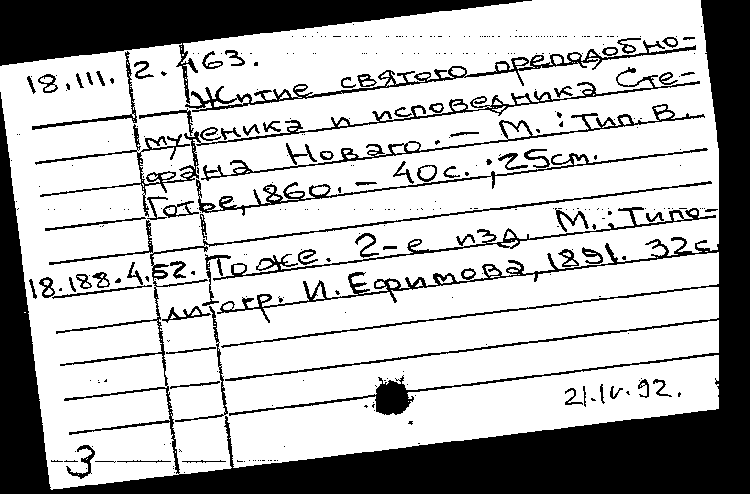 18.III. 2.463.
Житие святого преподобно=
мученика и исповедника Сте=
фана Нового. — М.: Тип. В.
Готье, 1860. — 40с.; 25см.
18.188.4.52. То же. 2-е изд. М.: Типо=
литогр. И. Ефимова, 1891. 32с.
21.IV.92.
З